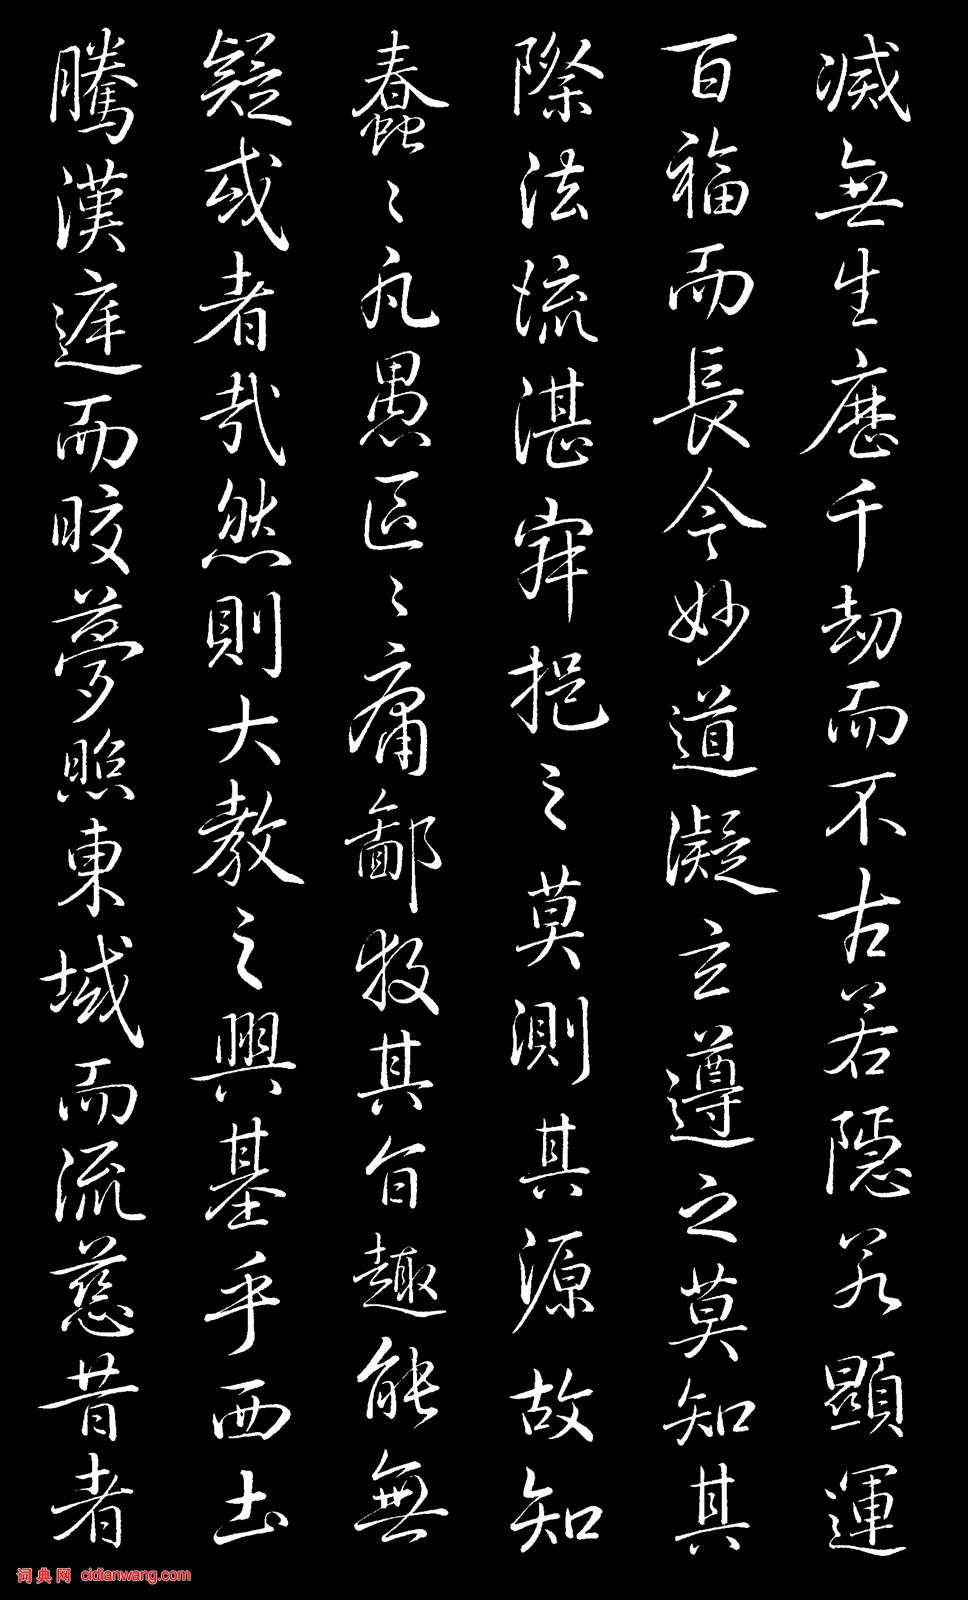 減無生歷千劫而不古若隱若顯運
百福而長今妙道凝玄遵之莫知其
際法流湛寂挹之莫測其源故知
蠢〻凡愚區〻庸鄙投其旨趣能無
疑或者哉然則大教之興基乎西土
騰漢庭而皎夢照東域而流慈昔者
词典网 cidianwang.com